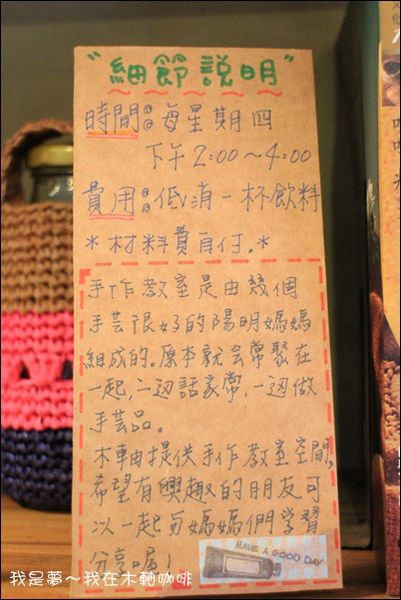 "細節說明"
時間：每星期四
下午2:00～4:00
費用：低消一杯飲料
*材料費自付.*
手作教室是由幾個
手芸很好的陽明媽媽
組成的。原本就会常聚在
一起,一边話家常,一边做
手芸品。
木軸提供手作教室空間,
希望有興趣的朋友可
以一起與媽媽們學習
分享喔!
HAVE A GOOD DAY
我是夢～我在木軸咖啡